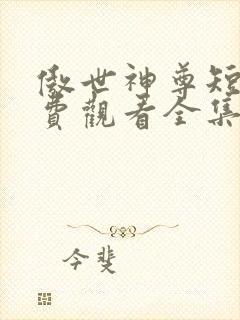 傲世神尊短
費觀看全集
今斐